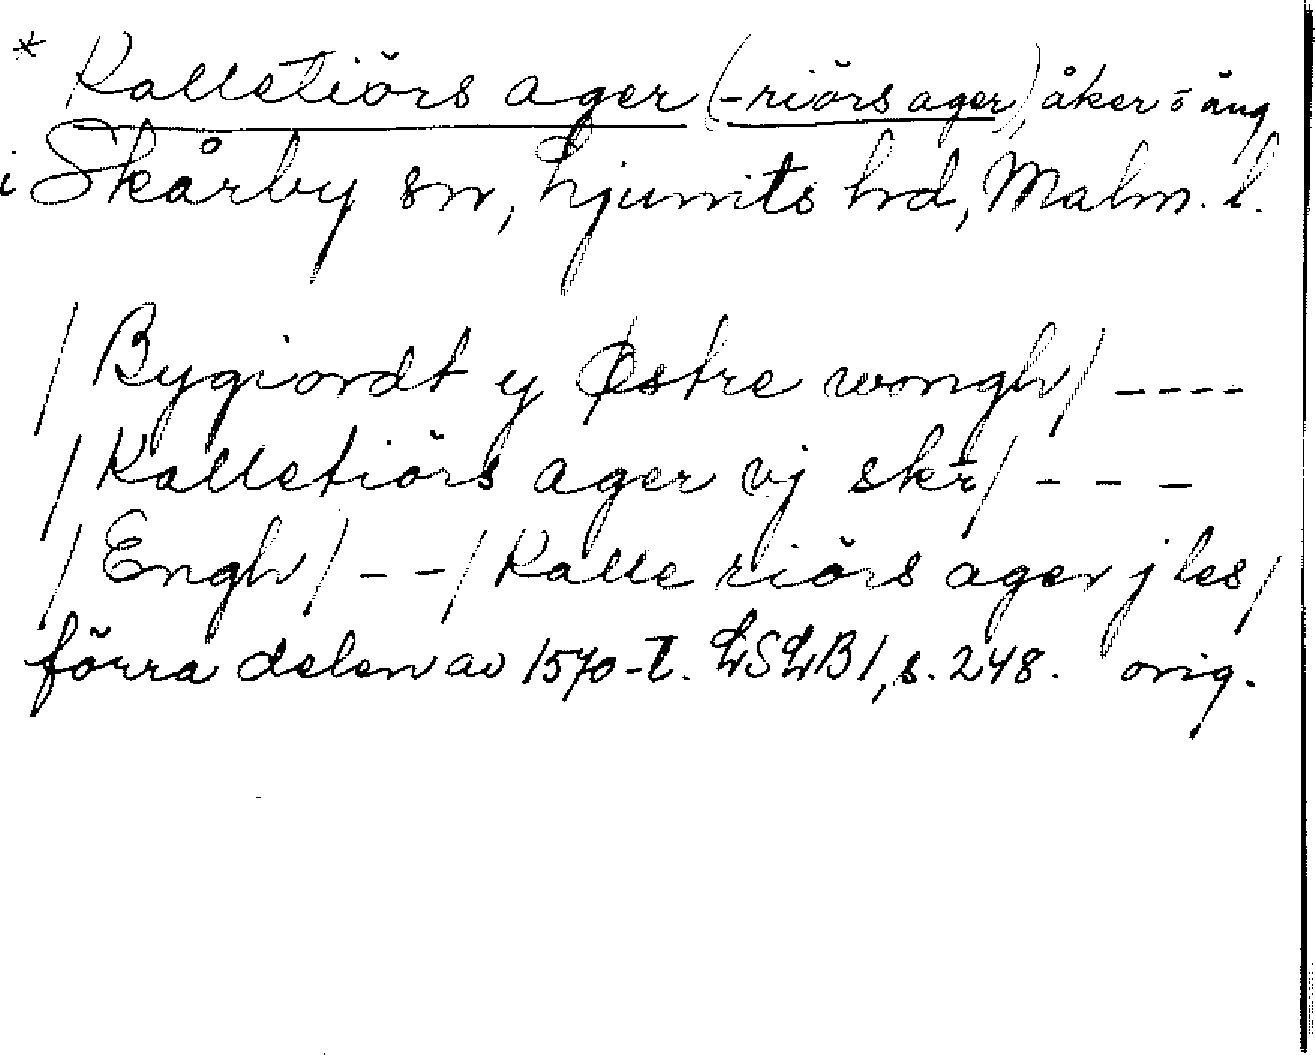 * Kalletiörs ager (-riörs ager) åker o äng
i Skårby sn, Ljunits hd, Malm. l.
/ Bygiordt y Østre wongh / ----
/ Kalletiörs ager vj skr̄ / - - -
/ Engh / - - / Kalle riörs ager j les /
förra delen av 1570-t. LSLB 1, s. 248. orig.